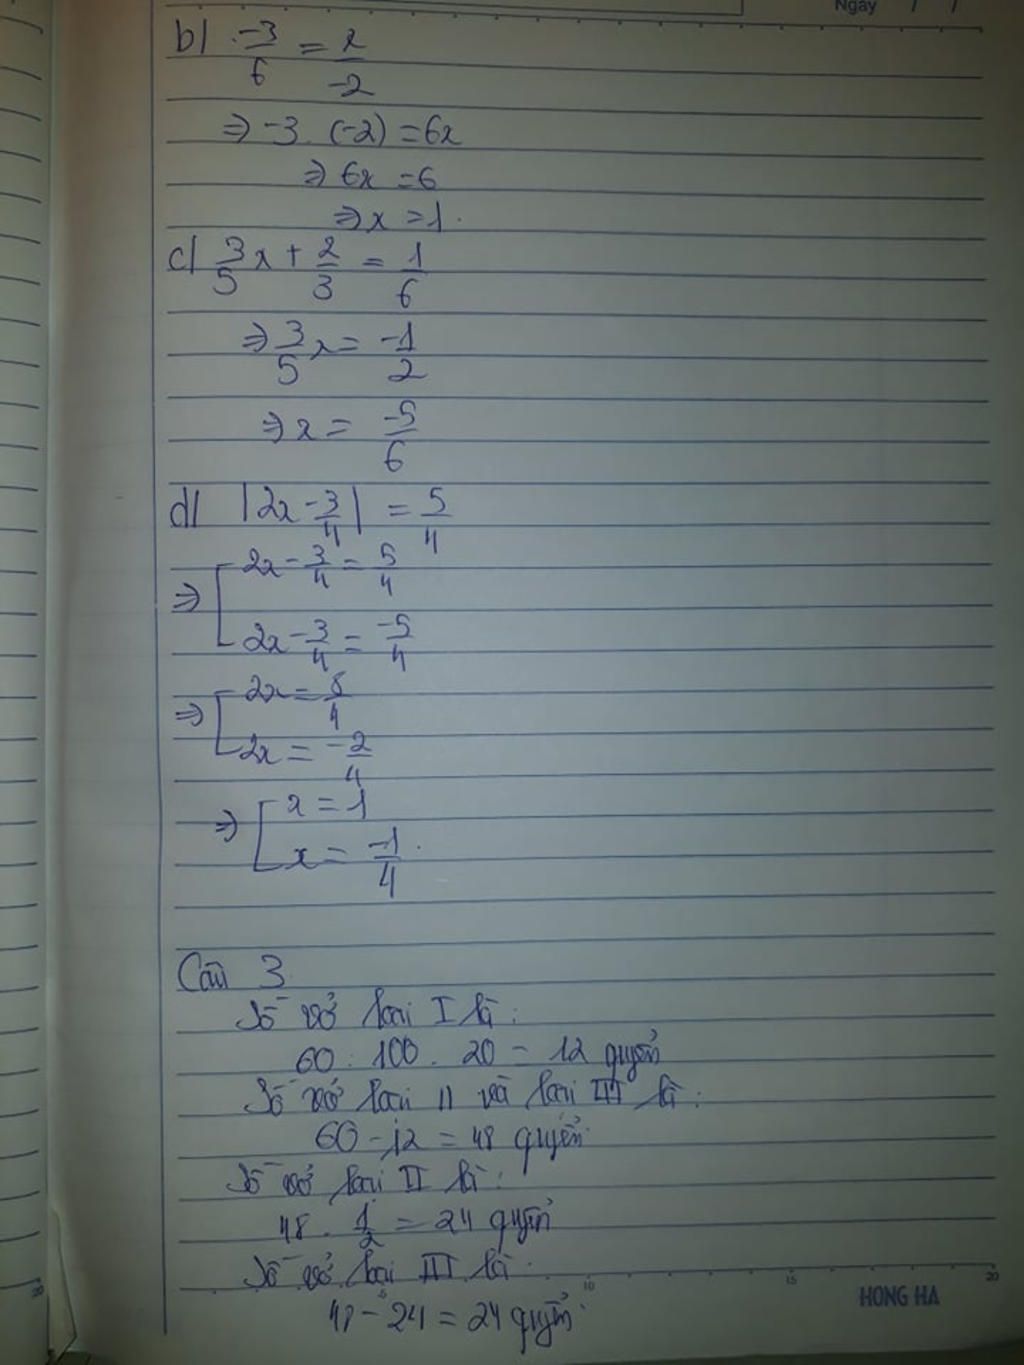 Ngày / /
b) -3/6 = x/-2
=> -3 . (-2) = 6x
=> 6x = 6
=> x = 1.
c) 3/5 x + 2/3 = 1/6
=> 3/5 x = -1/2
=> x = -5/6
d) |2x - 3/4| = 5/4
=> [ 2x - 3/4 = 5/4
2x - 3/4 = -5/4
=> [ 2x = 8/4
2x = -2/4
=> [ x = 1
x = -1/4.
Câu 3
Số vở loại I là:
60 : 100 . 20 = 12 quyển
Số vở loại II và loại III là:
60 - 12 = 48 quyển
Số vở loại II là:
48 . 1/2 = 24 quyển
Số vở loại III là:
48 - 24 = 24 quyển.
10 15 20
HONG HA